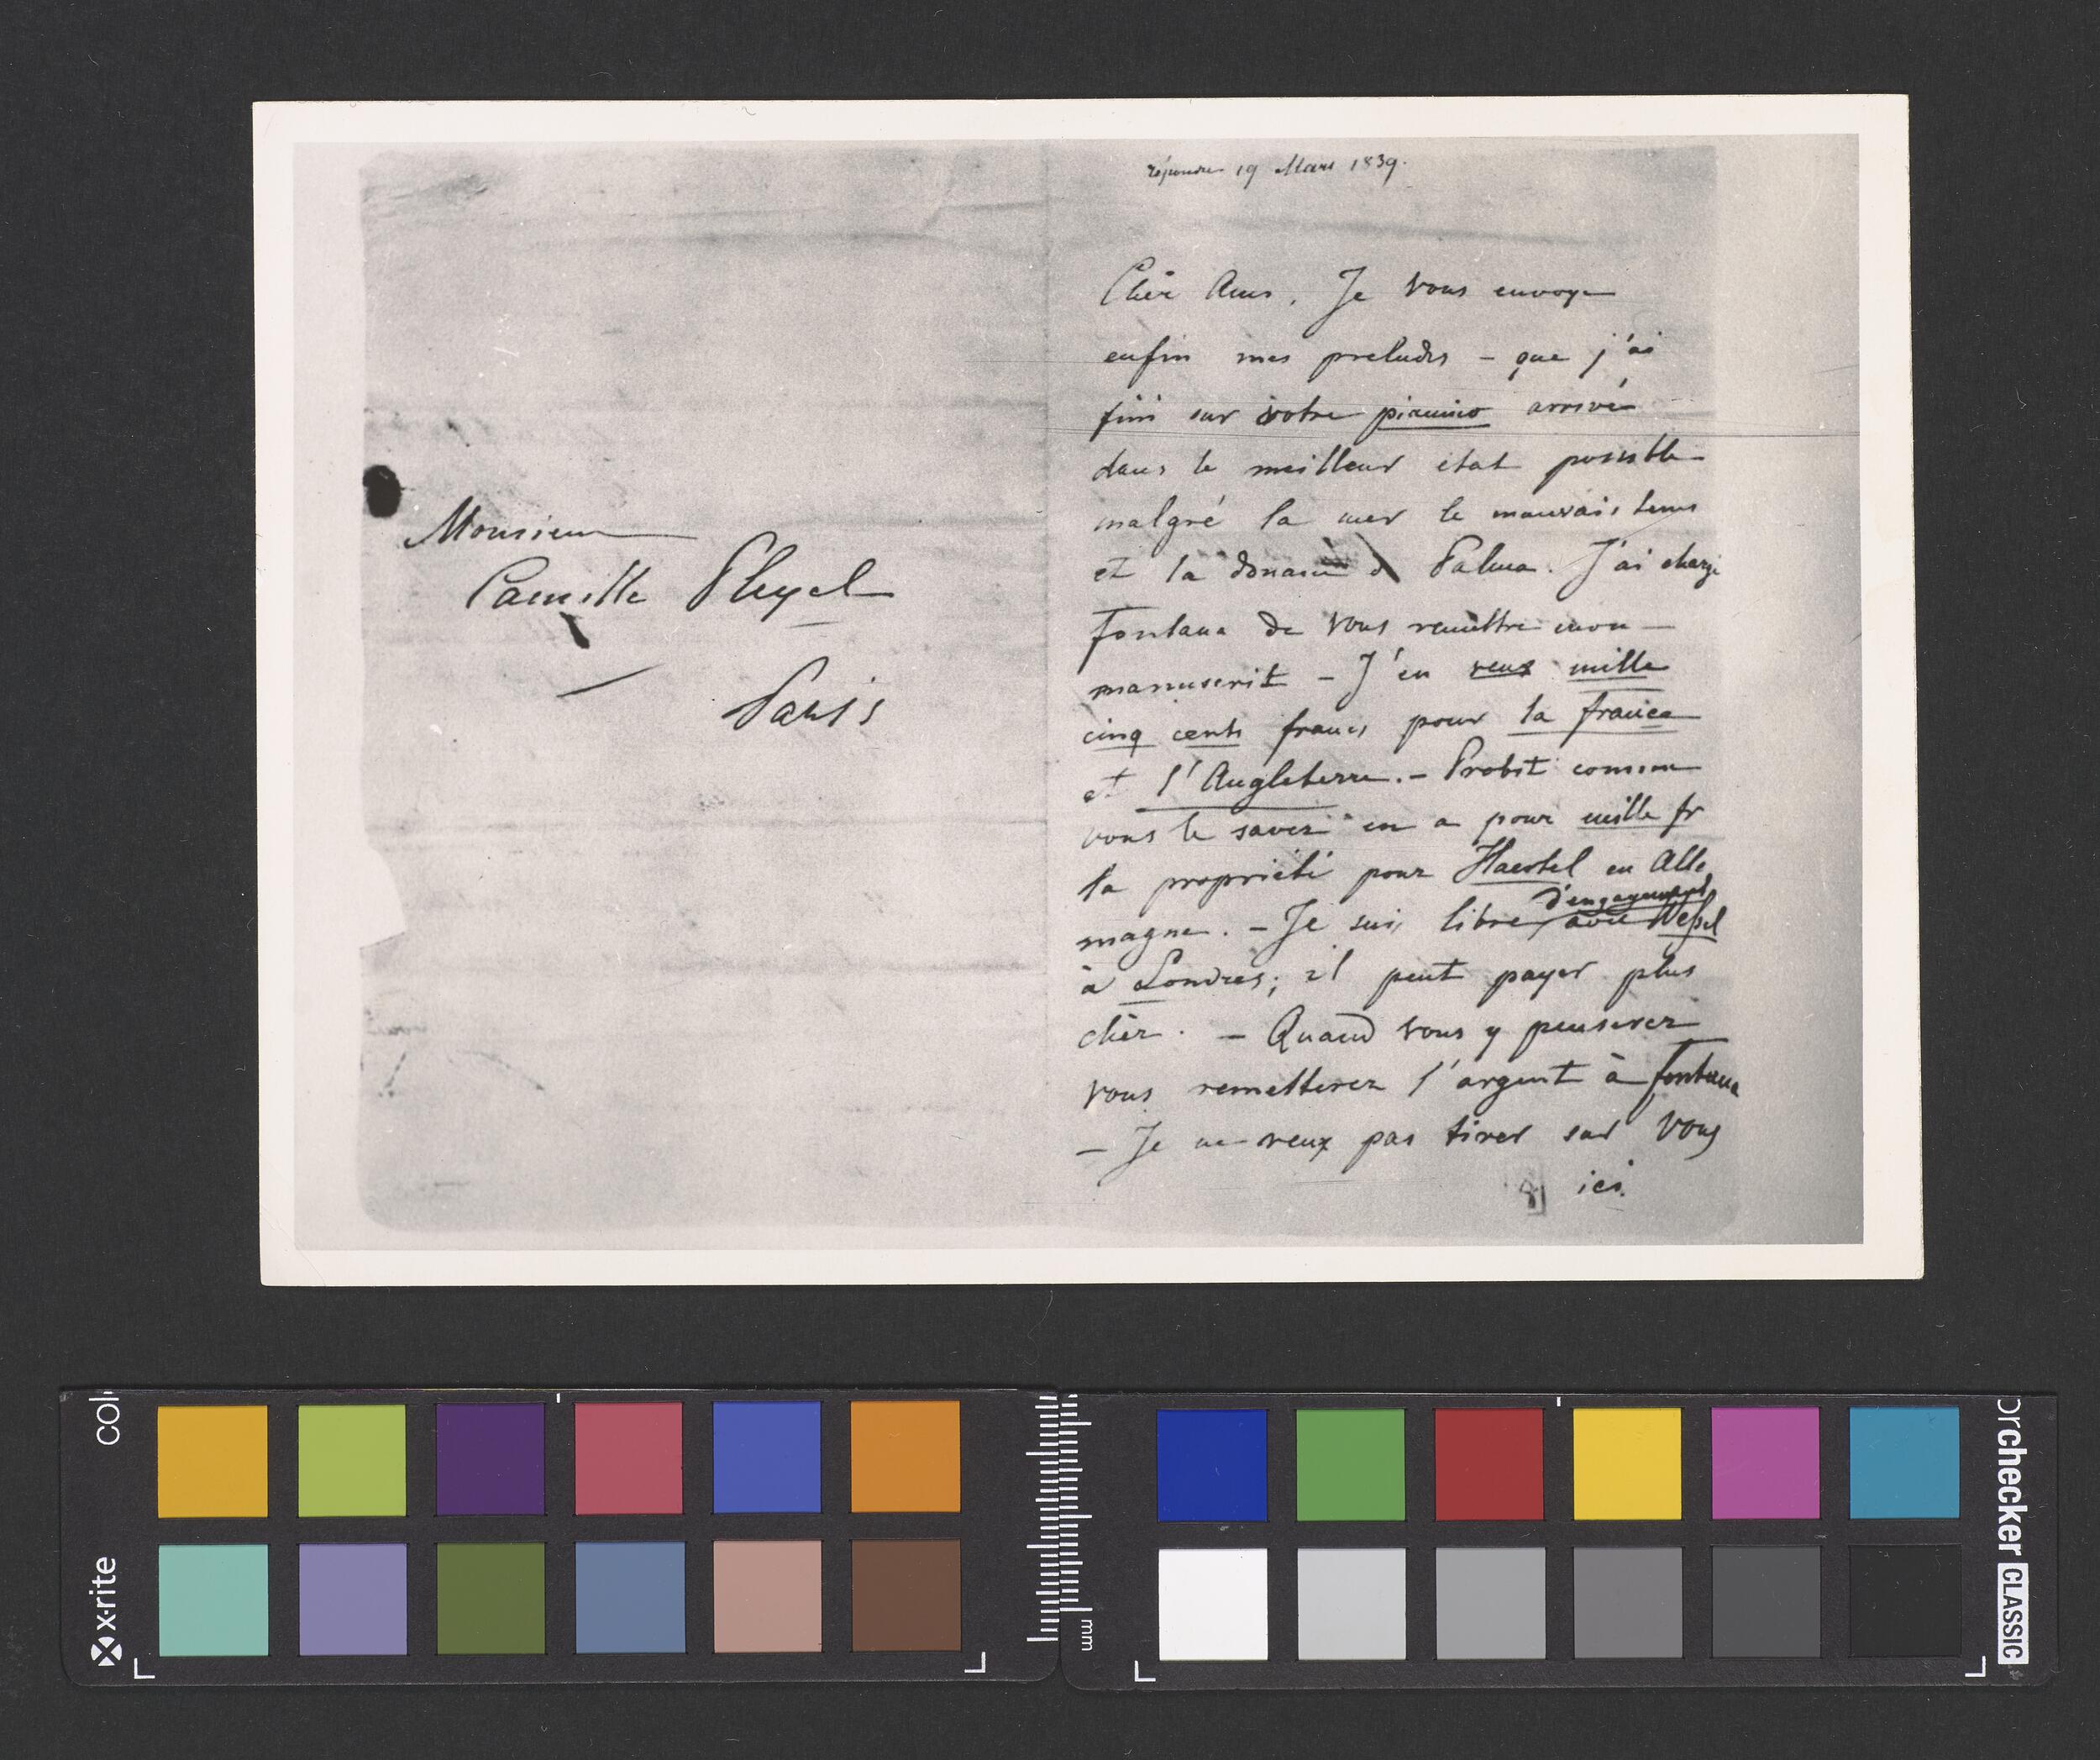 Monsieur
Camille Pleyel
Paris
répondre 19 Mars 1839.
Cher Ami. Je vous envoye
enfin mes preludes - que j'ai
fini sur votre pianino arrivé
dans le meilleur état possible
malgré la mer le mauvais tems
et la douane de Palma. J'ai chargé
Fontana de vous remettre mon
manuscrit - J'en veux mille
cinq cents francs pour la france
et l'Angleterre. - Probst comme
vous le savez en a pour mille fr
la propriété pour Haertel en Alle
magne. - Je suis libre d'engagement avec Wessel
à Londres; il peut payer plus
cher. - Quand vous y penserez
vous remetterez l'argent à Fontana
- Je ne veux pas tirer sur vous
ici.
col
x-rite
mm
orchecker CLASSIC